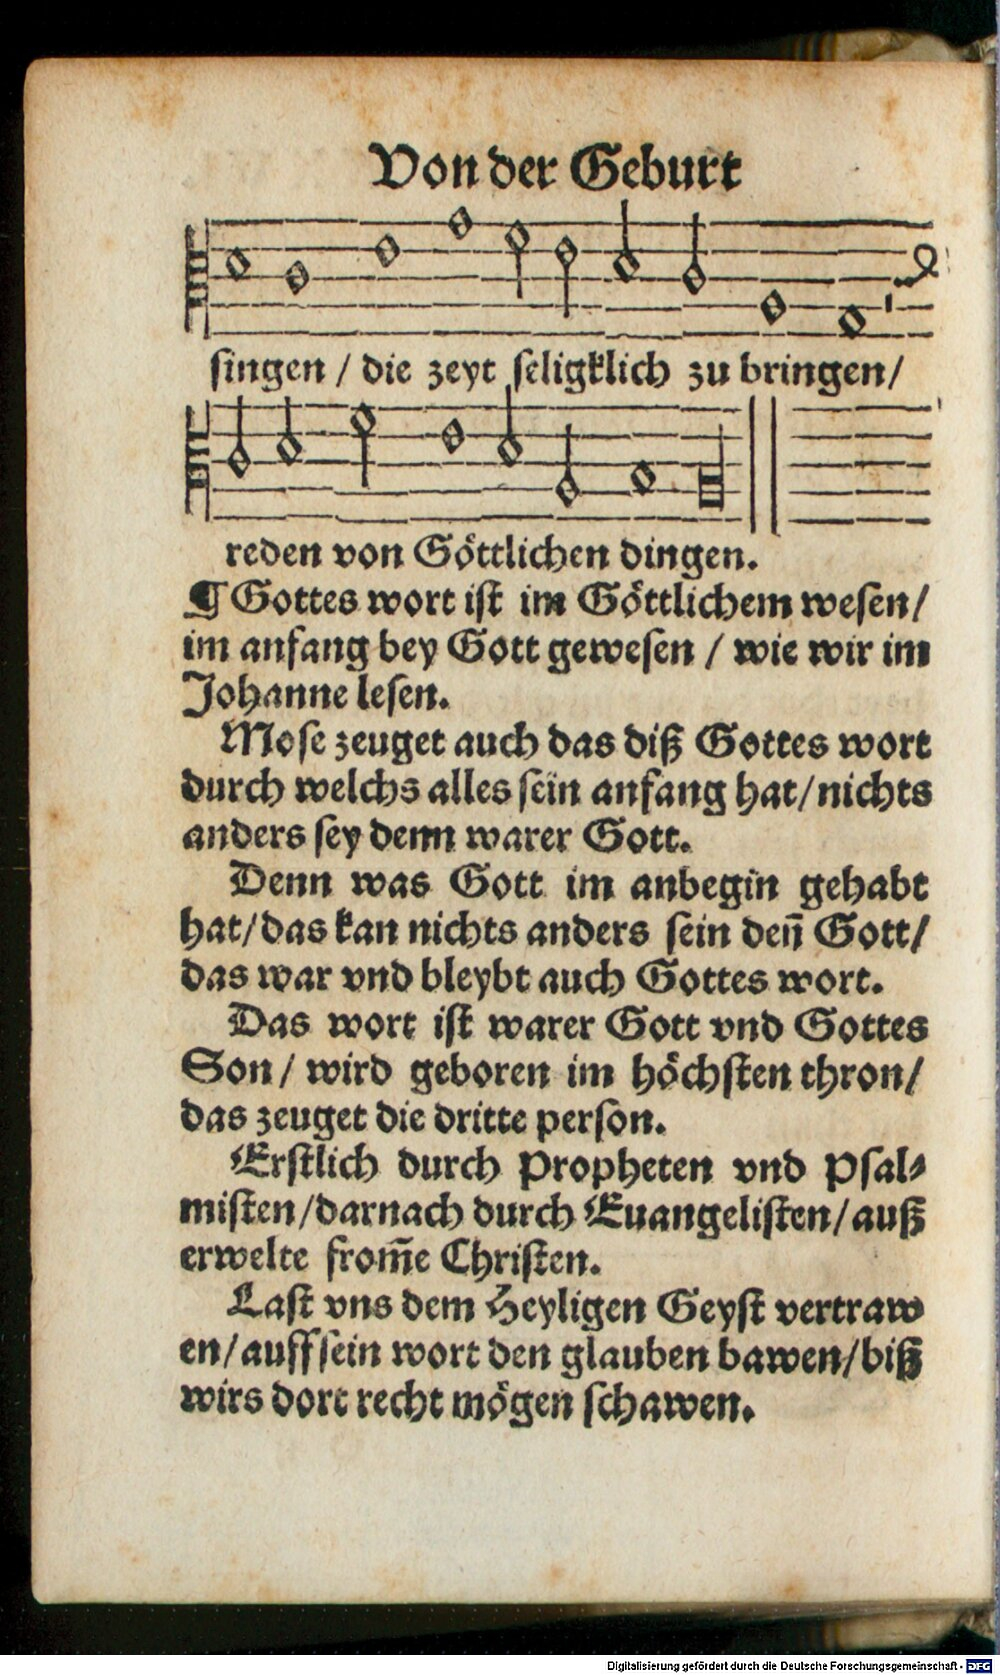 Von der Geburt
singen / die zeyt seligklich zu bringen/
reden von Göttlichen dingen.
¶ Gottes wort ist im Göttlichem wesen/
im anfang bey Gott gewesen / wie wir im
Johanne lesen.
Mose zeuget auch das diß Gottes wort
durch welchs alles sein anfang hat/nichts
anders sey denn warer Gott.
Denn was Gott im anbegin gehabt
hat/das kan nichts anders sein deñ Gott/
das war vnd bleybt auch Gottes wort.
Das wort ist warer Gott vnd Gottes
Son/ wird geboren im höchsten thron/
das zeuget die dritte person.
Erstlich durch Propheten vnd Psal⸗
misten/darnach durch Euangelisten/auß
erwelte from̃e Christen.
Last vns dem Heyligen Geyst vertraw
en/auff sein wort den glauben bawen/biß
wirs dort recht mögen schawen.
Digitalisierung gefördert durch die Deutsche Forschungsgemeinschaft - DFG